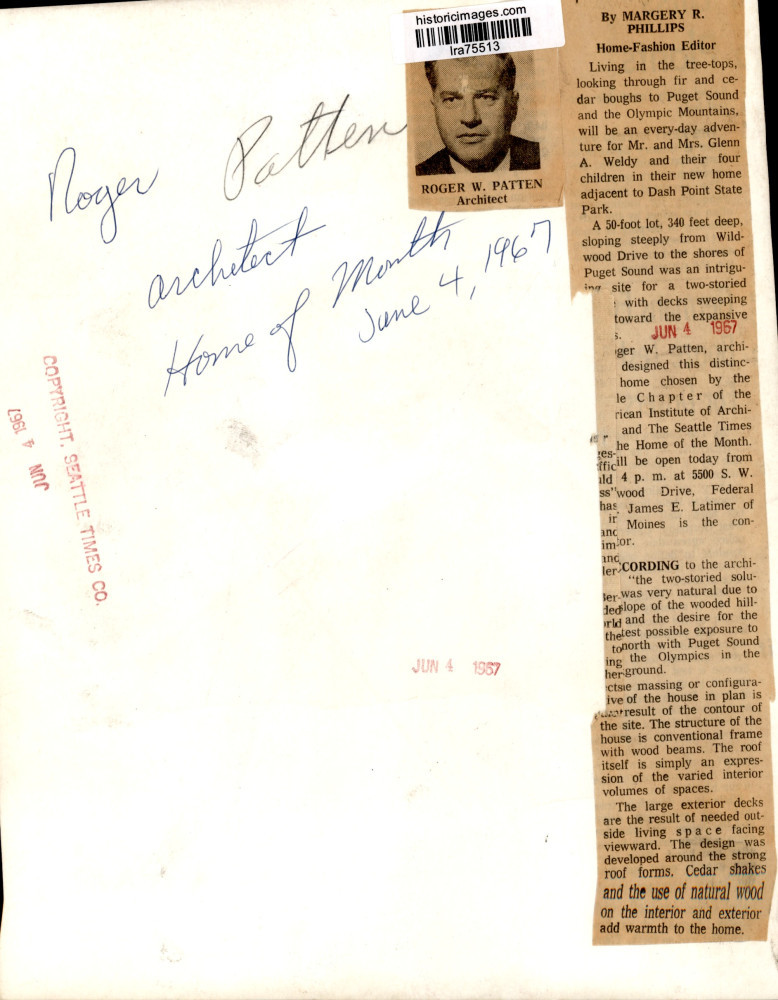 historicimages.com
lra75513
ROGER W. PATTEN
Architect
Roger Patten
architect
Home of Month
June 4, 1967
COPYRIGHT, SEATTLE TIMES CO.
JUN 4 1967
JUN 4 1967
By MARGERY R.
PHILLIPS
Home-Fashion Editor
Living in the tree-tops,
looking through fir and ce-
dar boughs to Puget Sound
and the Olympic Mountains,
will be an every-day adven-
ture for Mr. and Mrs. Glenn
A. Weldy and their four
children in their new home
adjacent to Dash Point State
Park.
A 50-foot lot, 340 feet deep,
sloping steeply from Wild-
wood Drive to the shores of
Puget Sound was an intrigu-
ing site for a two-storied
with decks sweeping
toward the expansive
s. JUN 4 1967
ger W. Patten, archi-
designed this distinc-
home chosen by the
le Chapter of the
rican Institute of Archi-
and The Seattle Times
he Home of the Month.
ill be open today from
4 p. m. at 5500 S. W.
wood Drive, Federal
James E. Latimer of
Moines is the con-
or.
CORDING to the archi-
"the two-storied solu-
was very natural due to
slope of the wooded hill-
and the desire for the
est possible exposure to
north with Puget Sound
the Olympics in the
ground.
e massing or configura-
of the house in plan is
result of the contour of
the site. The structure of the
house is conventional frame
with wood beams. The roof
itself is simply an expres-
sion of the varied interior
volumes of spaces.
The large exterior decks
are the result of needed out-
side living space facing
viewward. The design was
developed around the strong
roof forms. Cedar shakes
and the use of natural wood
on the interior and exterior
add warmth to the home.